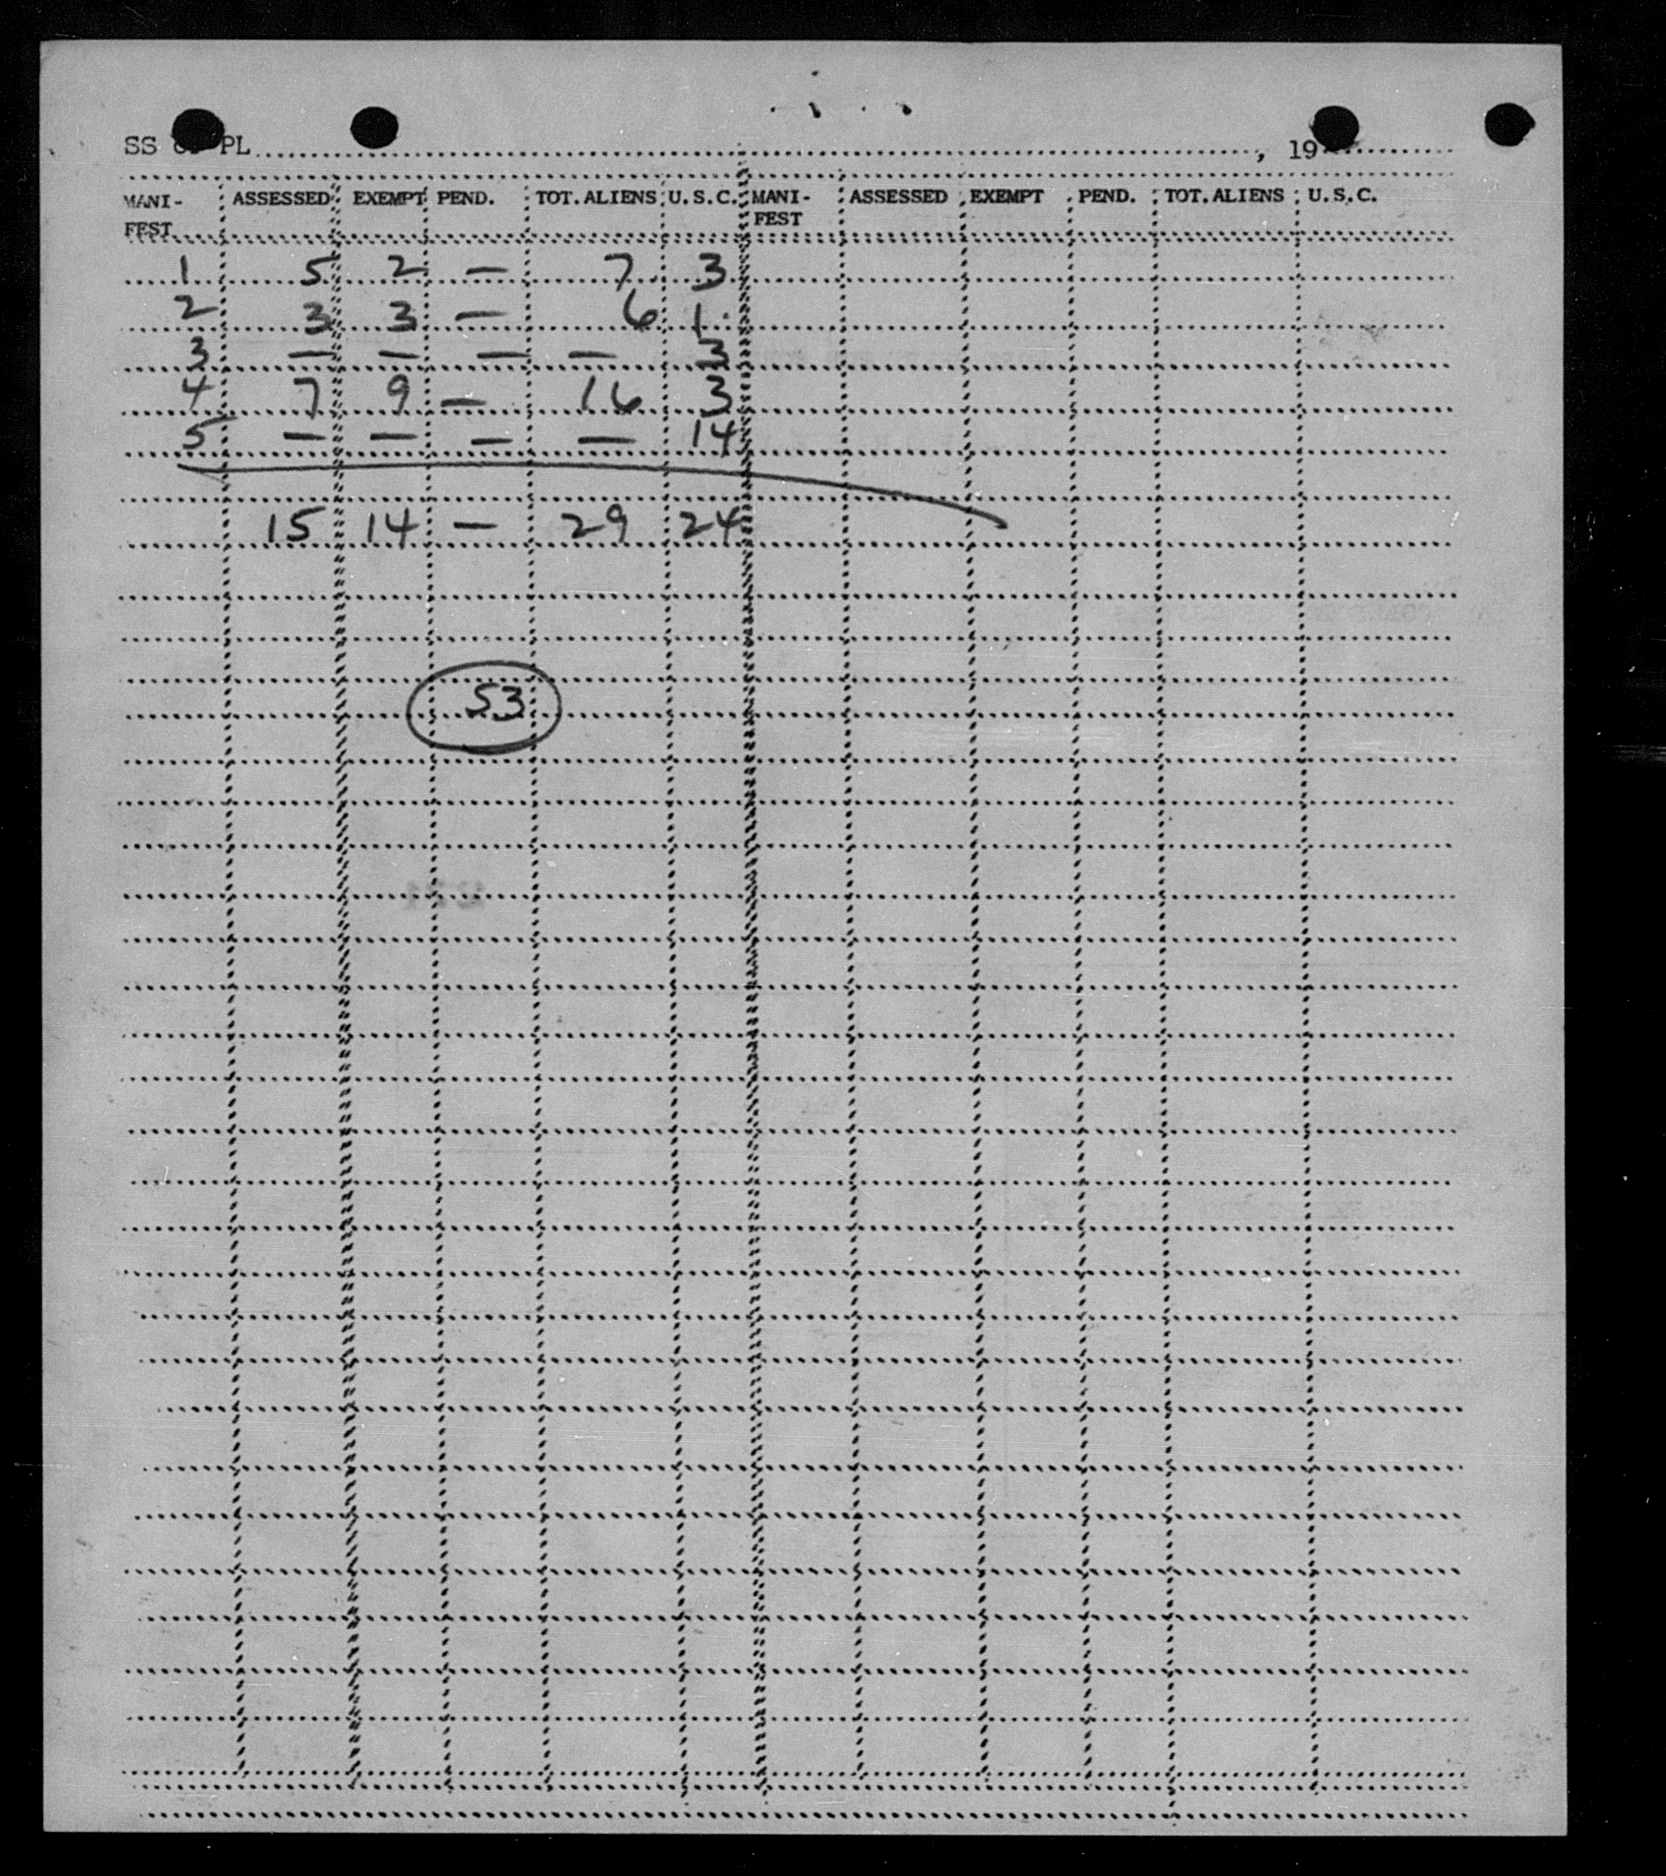 SS or PL , 19
MANI- ASSESSED EXEMPT PEND. TOT. ALIENS U.S.C. MANI- ASSESSED EXEMPT PEND. TOT. ALIENS U.S.C.
FEST FEST
1 5 2 — 7 3
2 3 3 — 6 1
3 — — — — 3
4 7 9 — 16 3
5 — — — — 14
15 14 — 29 24
53